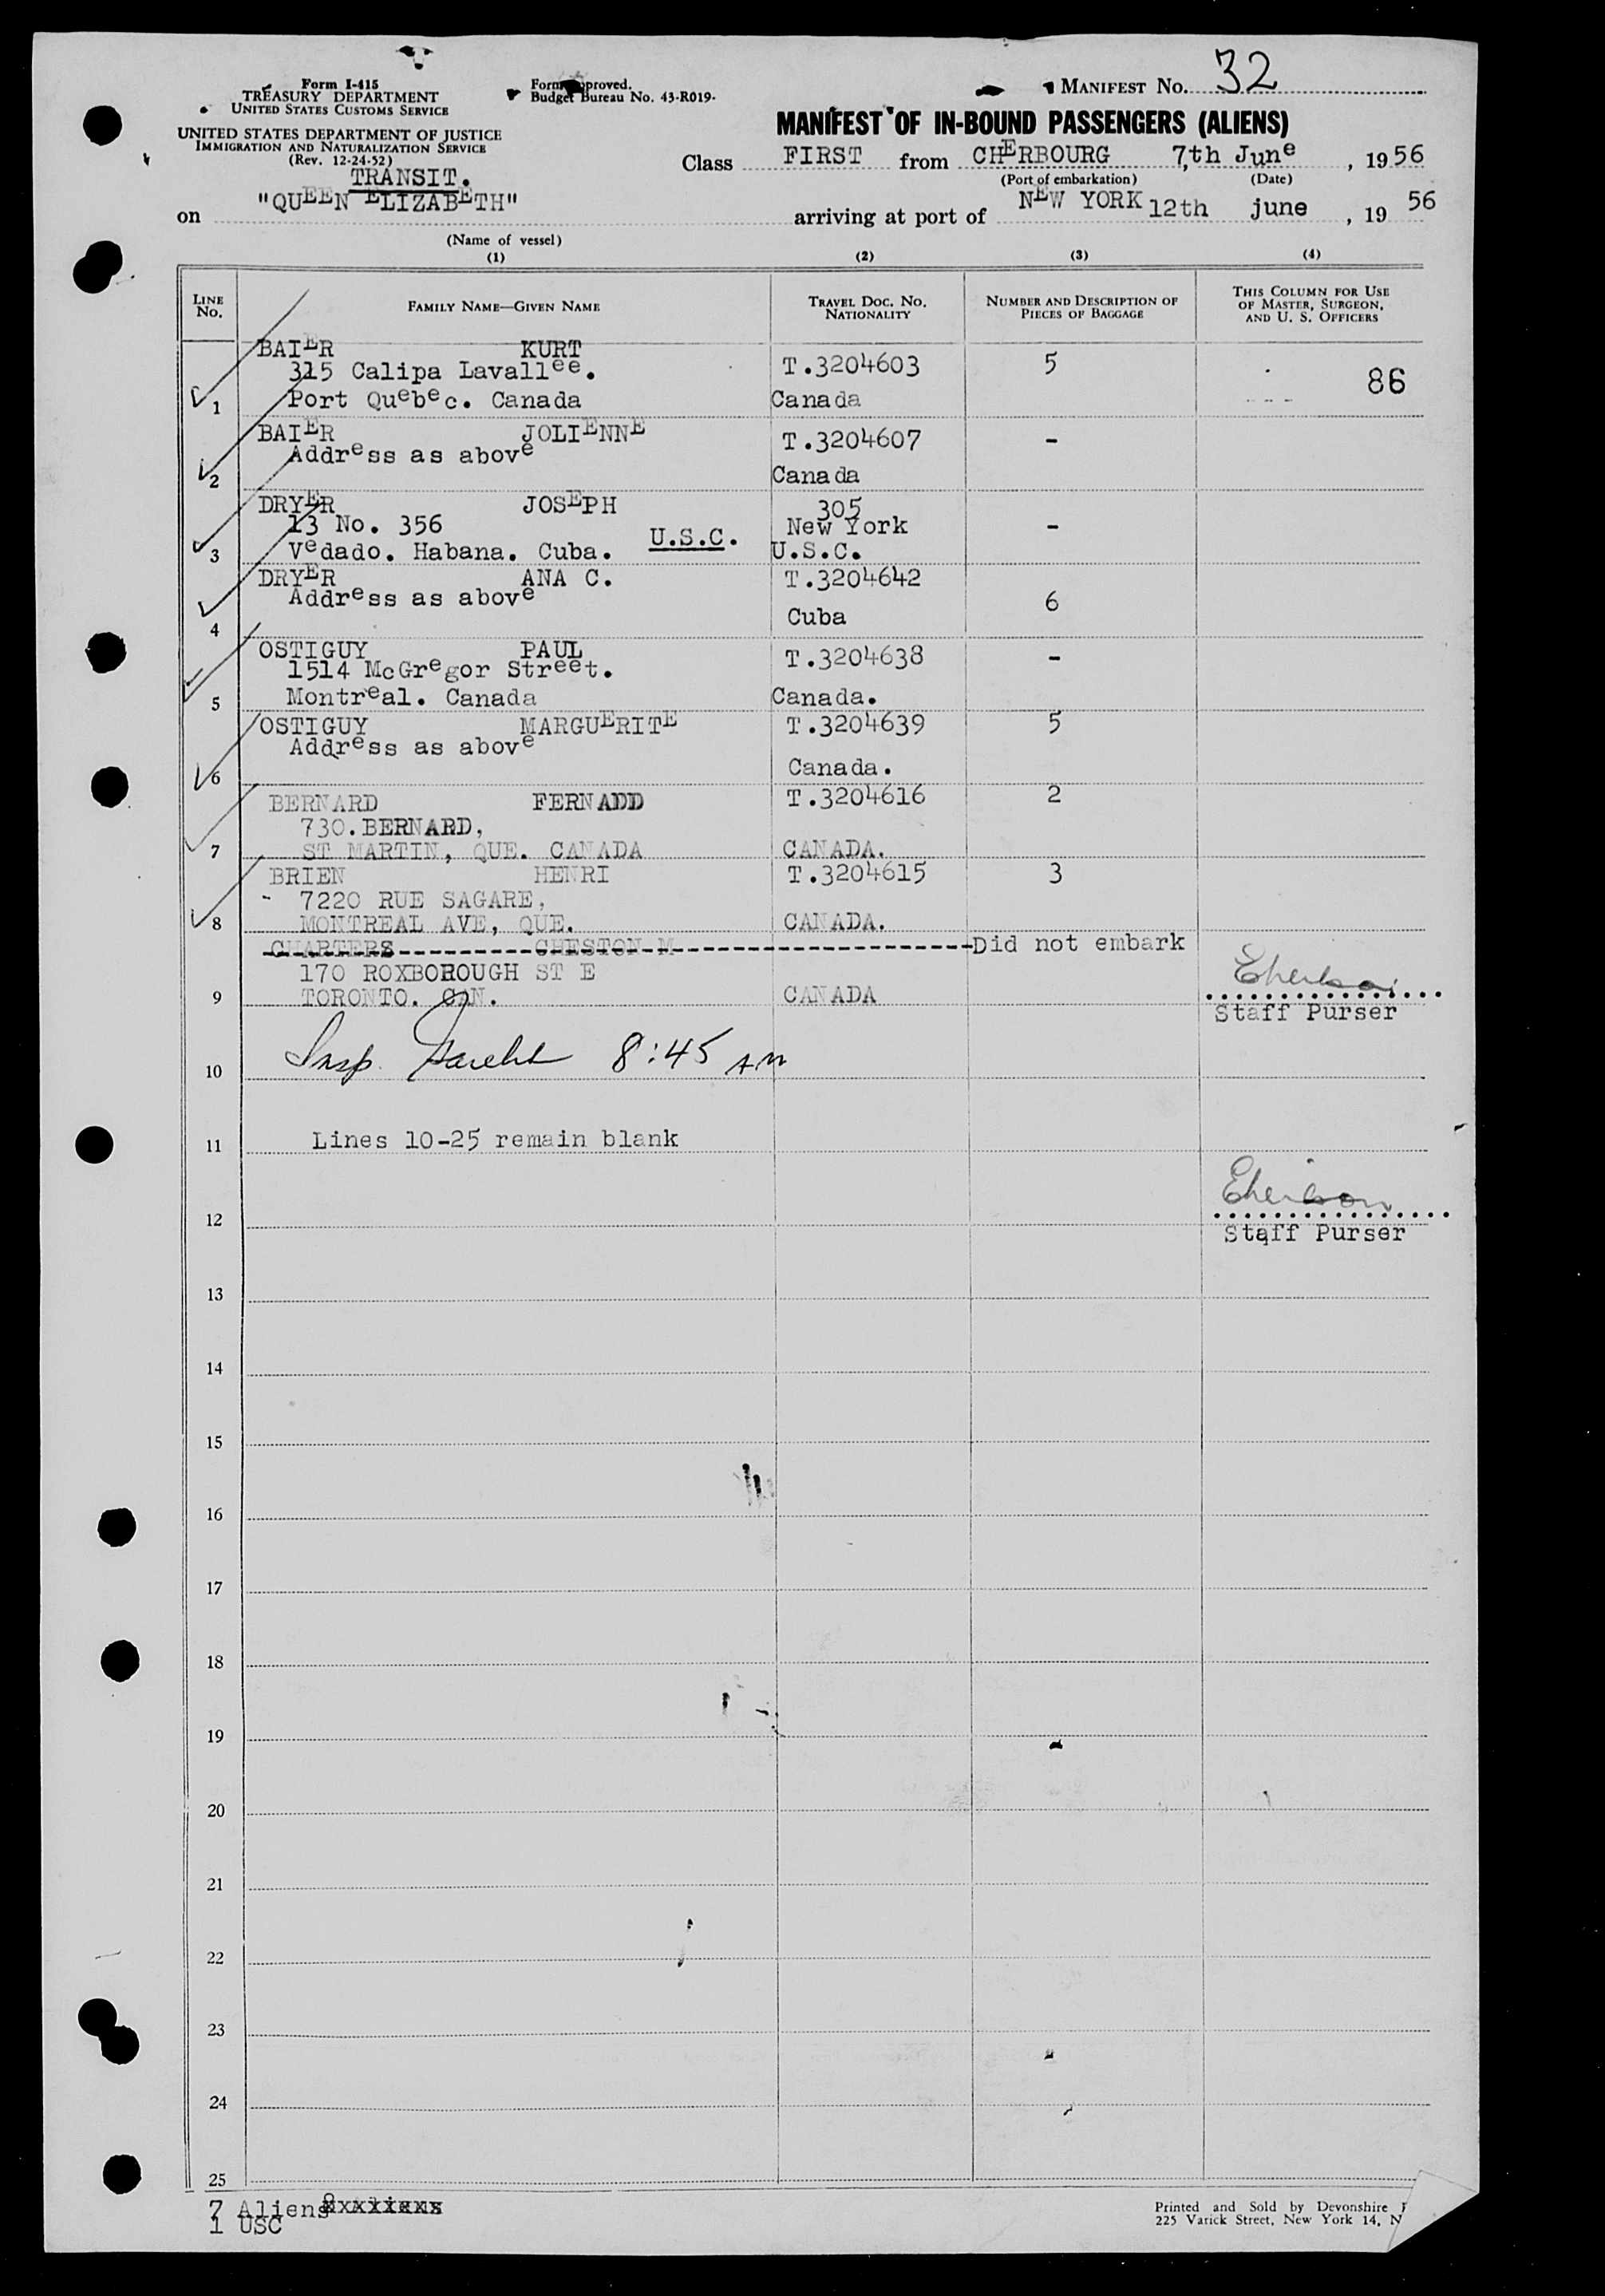 Form I-415
TREASURY DEPARTMENT
UNITED STATES CUSTOMS SERVICE
UNITED STATES DEPARTMENT OF JUSTICE
IMMIGRATION AND NATURALIZATION SERVICE
(Rev. 12-24-52)
TRANSIT.
Form approved.
Budget Bureau No. 43-R019-
MANIFEST NO. 32
MANIFEST OF IN-BOUND PASSENGERS (ALIENS)
Class FIRST from CHERBOURG 7,th June, 1956
(Port of embarkation) (Date)
on "QUEEN ELIZABETH" arriving at port of NEW YORK 12th june, 19 56
(Name of vessel)
(1) (2) (3) (4)
LINE NO. FAMILY NAME—GIVEN NAME TRAVEL DOC. NO. NATIONALITY NUMBER AND DESCRIPTION OF PIECES OF BAGGAGE THIS COLUMN FOR USE OF MASTER, SURGEON, AND U. S. OFFICERS
BAIER KURT
315 Calipa Lavallee. T.3204603 5 86
1 Port Quebec. Canada Canada
BAIER JOLIENNE T.3204607 -
Address as above
2 Canada
DRYER JOSEPH 305
13 No. 356 New York -
3 Vedado. Habana. Cuba. U.S.C. U.S.C.
DRYER ANA C. T.3204642
Address as above 6
4 Cuba
OSTIGUY PAUL T.3204638 -
1514 McGregor Street.
5 Montreal. Canada Canada.
OSTIGUY MARGUERITE T.3204639 5
Address as above
6 Canada.
BERNARD FERNADD T.3204616 2
730.BERNARD,
7 ST MARTIN, QUE. CANADA CANADA.
BRIEN HENRI T.3204615 3
- 7220 RUE SAGARE,
8 MONTREAL AVE, QUE. CANADA.
CHARTERS CHESTON M Did not embark
170 ROXBOROUGH ST E
9 TORONTO. CAN. CANADA
Staff Purser
10 Insp. 8:45 AM
11 Lines 10-25 remain blank
12
Staff Purser
13
14
15
16
17
18
19
20
21
22
23
24
25
7 Aliens
1 USC
Printed and Sold by Devonshire
225 Varick Street, New York 14, N